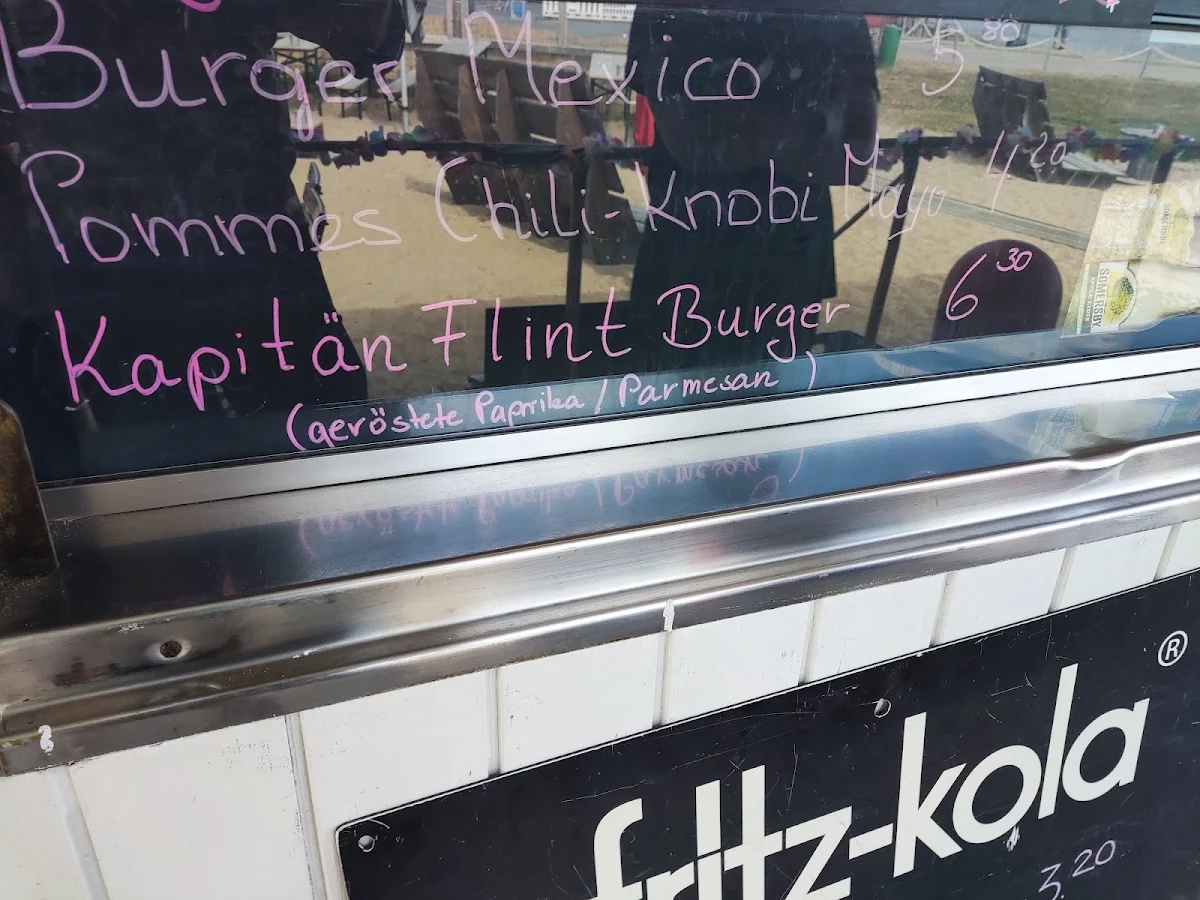 Burger Mexico 5 80
Pommes Chili-Knobi Mayo 4 20
Kapitän Flint Burger 6 30
(geröstete Paprika / Parmesan)
SOMERSBY
SOMERSBY
fritz-kola®
3.20